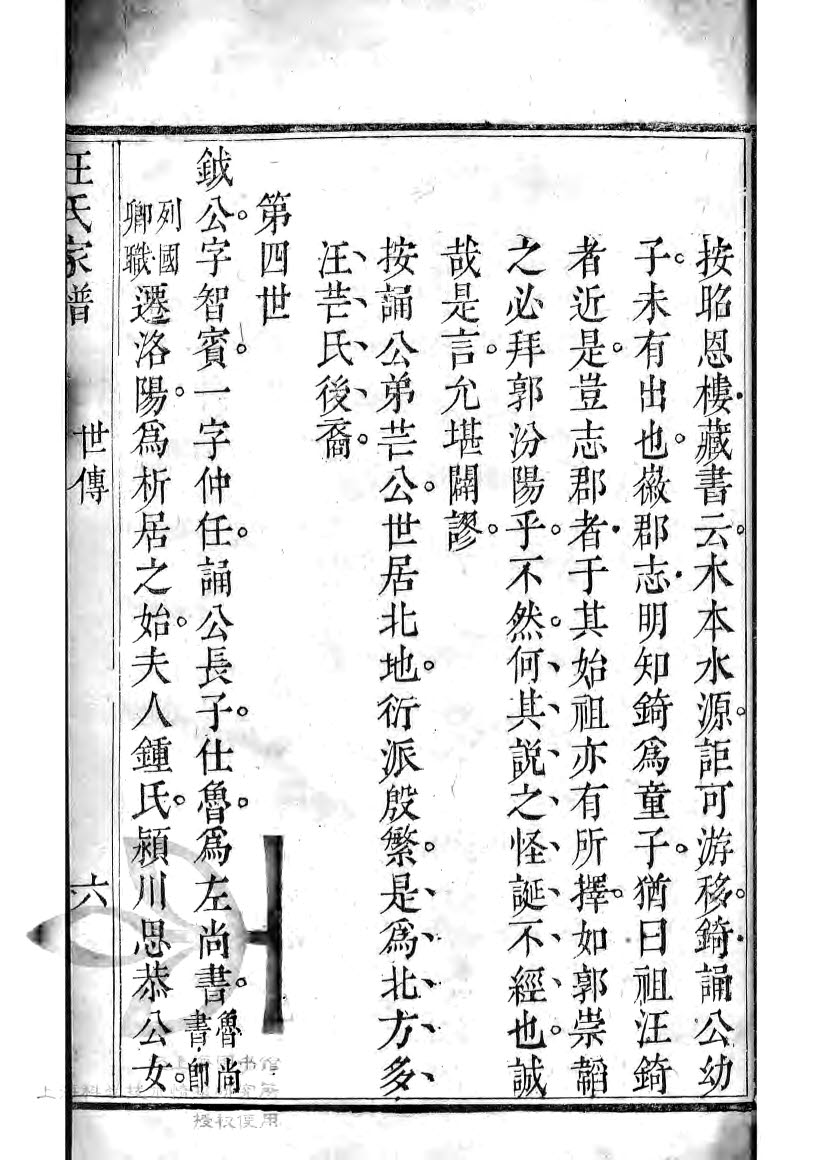 按昭恩樓藏書云木本水源詎可游移錡誦公幼
子未有出也徽郡志明知錡爲童子猶曰祖汪錡
者近是豈志郡者于其始祖亦有所擇如郭崇韜
之必拜郭汾陽乎不然何其說之怪誕不經也誠
哉是言允堪闢謬
按誦公弟芒公世居北地衍派殷繁是爲北方多
汪芒氏後裔
第四世
鉞公字智賓一字仲任誦公長子仕魯爲左尚書魯尚書卽
列國卿職遷洛陽爲析居之始夫人鍾氏潁川思恭公女
汪氏家譜 世傳 六
授权使用